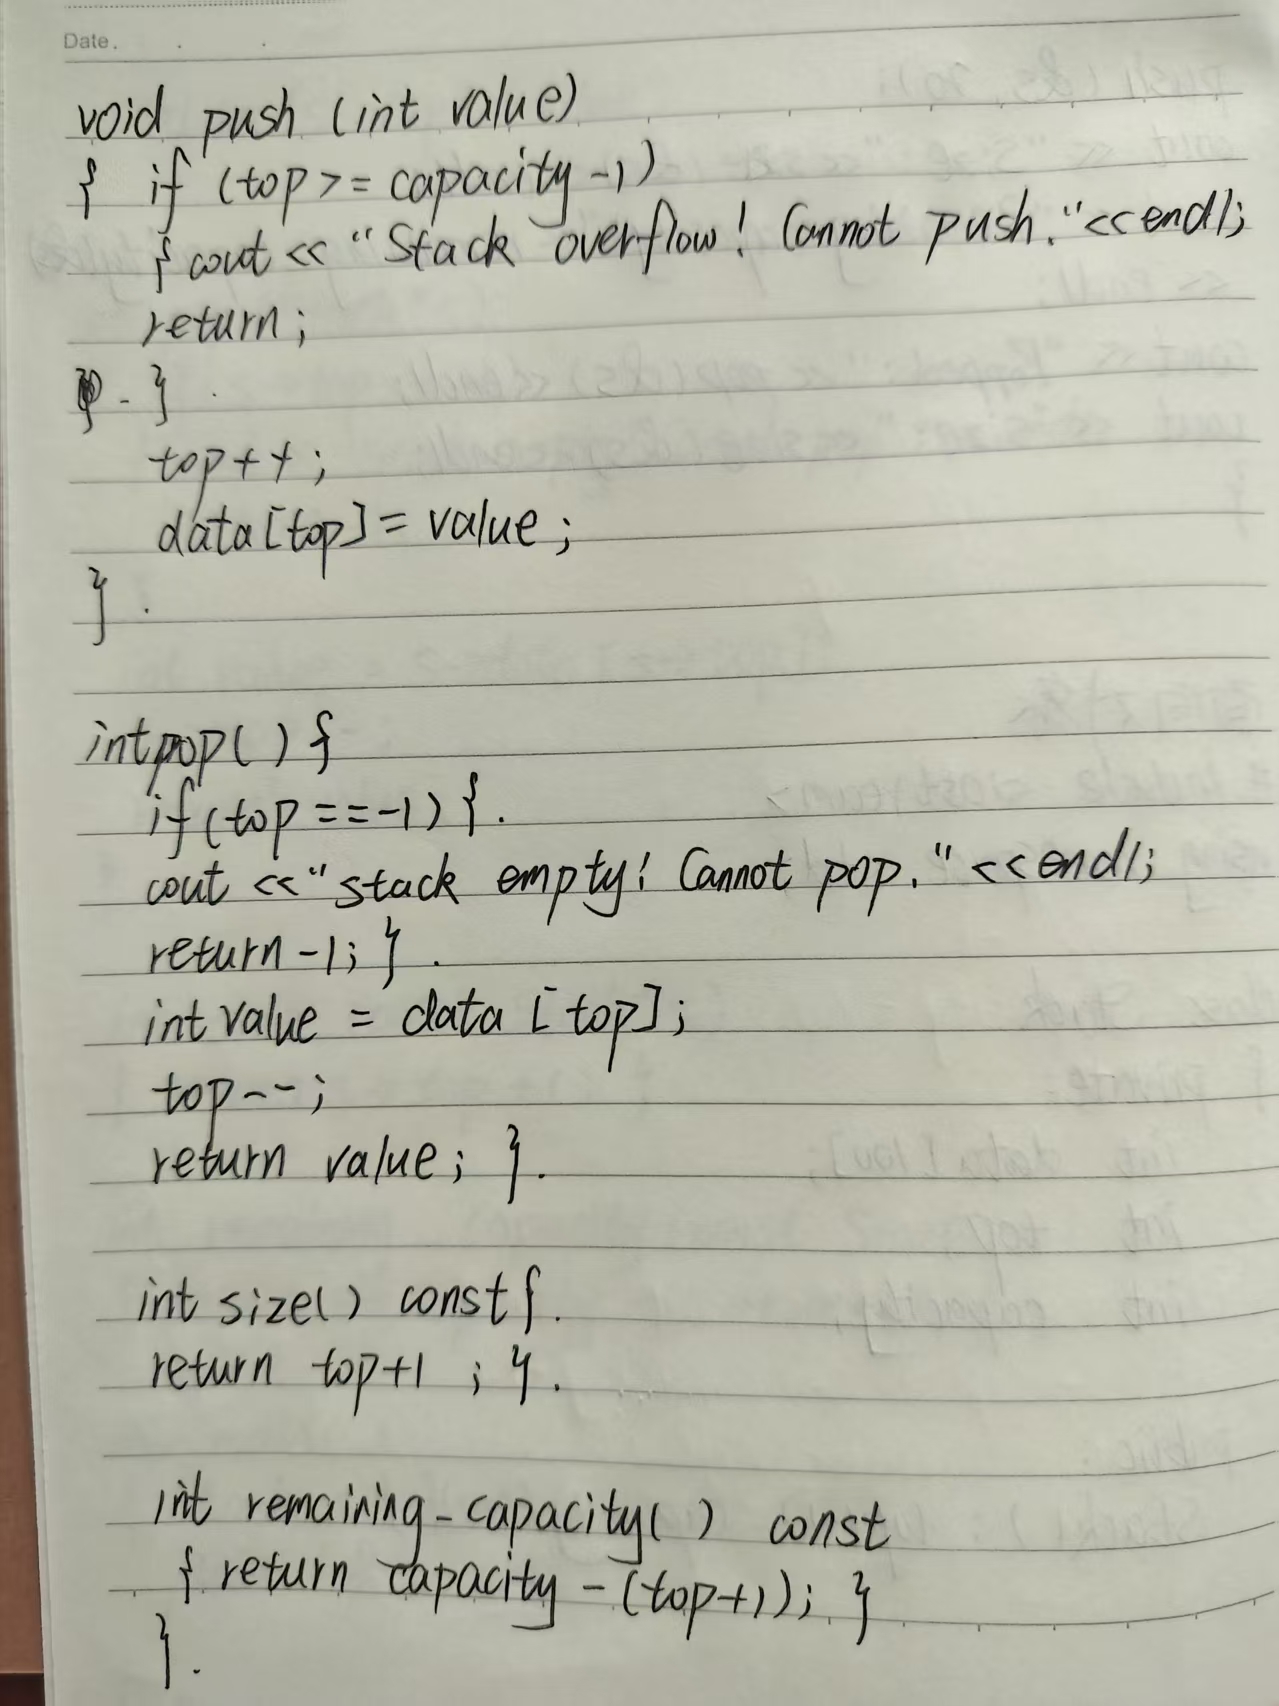 Date.
void push (int value)
{ if (top >= capacity -1)
{ cout << "Stack overflow! Cannot push." << endl;
return;
}
top++;
data[top] = value;
}
int pop() {
if (top == -1) {
cout << "stack empty! Cannot pop." << endl;
return -1; }
int value = data [top];
top--;
return value; }
int size() const {
return top+1 ; }
int remaining_capacity() const
{ return capacity - (top+1); }
}